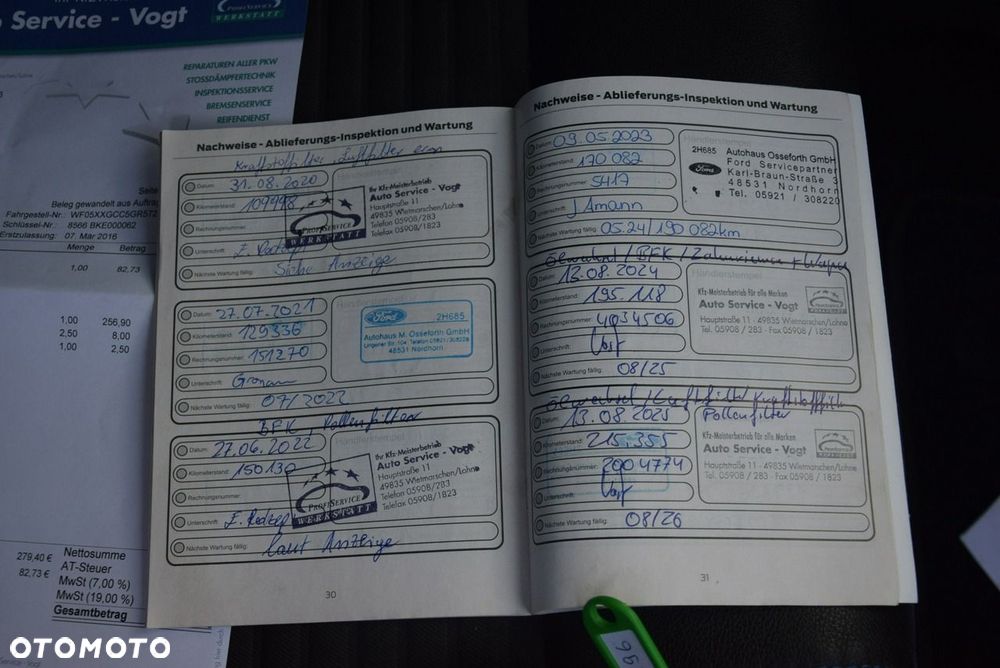 Ihr Kfz-Meis
o Service - Vogt
PROFISERVICE
WERKSTATT
REPARATUREN ALLER PKW
STOSSDÄMPFERTECHNIK
INSPEKTIONSSERVICE
BREMSENSERVICE
REIFENDIENST
Seite
Beleg gewandelt aus Auftrag
Fahrgestell-Nr.: WF05XXGCC5GR572
Schlüssel-Nr.: 8566 BKE000062
Erstzulassung: 07. Mär 2016
Menge Betrag
1,00 82,73
1,00 256,90
2,50 8,00
1,00 2,50
279,40 € Nettosumme
82,73 € AT-Steuer
MwSt (7,00 %)
MwSt (19,00 %)
Gesamtbetrag
Nachweise - Ablieferungs-Inspektion und Wartung
Kraftstoffilter, Luftfilter ern
Datum: 31.08.2020
Kilometerstand: 109998
Rechnungsnummer:
Unterschrift:
Nächste Wartung fällig: Siehe Anzeige
Ihr Kfz-Meisterbetrieb
Auto Service - Vogt
Hauptstraße 11
49835 Wietmarschen/Lohne
Telefon 05908/283
Telefax 05908/1823
PROFISERVICE
WERKSTATT
Datum: 27.07.2021
Kilometerstand: 129336
Rechnungsnummer: 151270
Unterschrift:
Nächste Wartung fällig: 07/2022
Händlerstempel
Ford 2H685
Autohaus M. Osseforth GmbH
48531 Nordhorn
BFK, Pollenfilter
Datum: 27.06.2022
Kilometerstand: 150130
Rechnungsnummer:
Unterschrift:
Nächste Wartung fällig: laut Anzeige
Händlerstempel
Ihr Kfz-Meisterbetrieb
Auto Service - Vogt
Hauptstraße 11
49835 Wietmarschen/Lohne
Telefon 05908/283
Telefax 05908/1823
PROFISERVICE
WERKSTATT
30
Nachweise - Ablieferungs-Inspektion und Wartung
Datum: 09.05.2023
Kilometerstand: 170 082
Rechnungsnummer: SH17
Unterschrift: J Amann
Nächste Wartung fällig: 05.24/190 082km
Händlerstempel
2H685 Autohaus Osseforth GmbH
Ford Ford Servicepartner
Karl-Braun-Straße 3
48531 Nordhorn
Tel. 05921 / 308220
Ölwechsel / BFK / Zahnriemen + Wapu
Datum: 13.08.2024
Kilometerstand: 195.118
Rechnungsnummer: 4034506
Unterschrift: Vogt
Nächste Wartung fällig: 08/25
Händlerstempel
Kfz-Meisterbetrieb für alle Marken
Auto Service - Vogt
Hauptstraße 11 - 49835 Wietmarschen/Lohne
Tel. 05908 / 283 - Fax 05908 / 1823
Ölwechsel / Luftfilter Kraftstofffilter
Pollenfilter
Datum: 13.08.2025
Kilometerstand: 215.355
Rechnungsnummer: 2004774
Unterschrift: Vogt
Nächste Wartung fällig: 08/26
Kfz-Meisterbetrieb für alle Marken
Auto Service - Vogt
Hauptstraße 11 - 49835 Wietmarschen/Lohne
Tel. 05908 / 283 - Fax 05908 / 1823
31
96
OTOMOTO